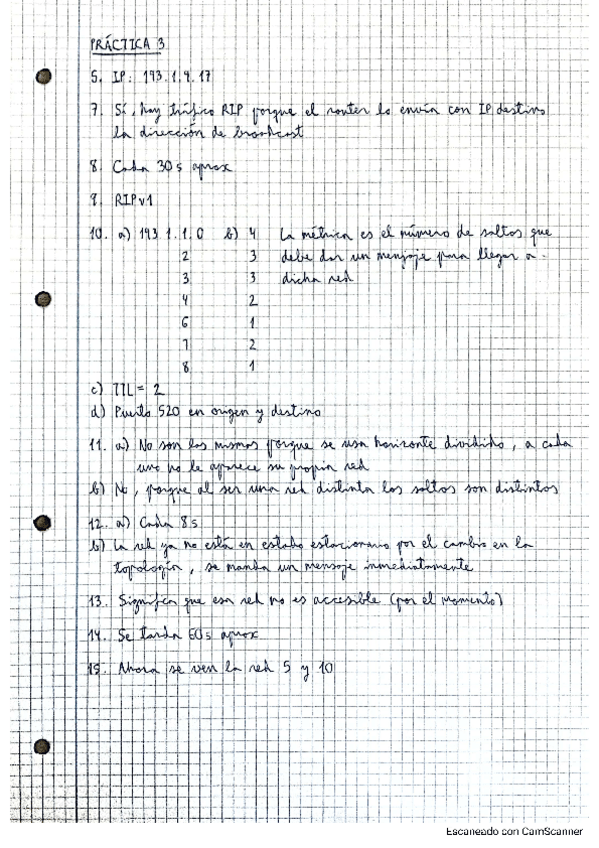 PRÁCTICA 3
5. IP: 193.1.9.17
7. Sí, hay tráfico RIP porque el router lo envía con IP destino
la dirección de broadcast
8. Cada 30 s aprox
9. RIPv1
10. a) 193.1.1.0 b) 4 La métrica es el número de saltos que
2 3 debe dar un mensaje para llegar a
3 3 dicha red
4 2
6 1
7 2
8 1
c) TTL = 2
d) Puerto 520 en origen y destino
11. a) No son las mismas porque se usa horizonte dividido, a cada
uno no le aparece su propia red
b) No, porque al ser una red distinta los saltos son distintos
12. a) Cada 8s
b) La red ya no está en estado estacionario por el cambio en la
topología, se manda un mensaje inmediatamente
13. Significa que esa red no es accesible (por el momento)
14. Se tarda 60s aprox
15. Ahora se ven la red 5 y 10
Escaneado con CamScanner